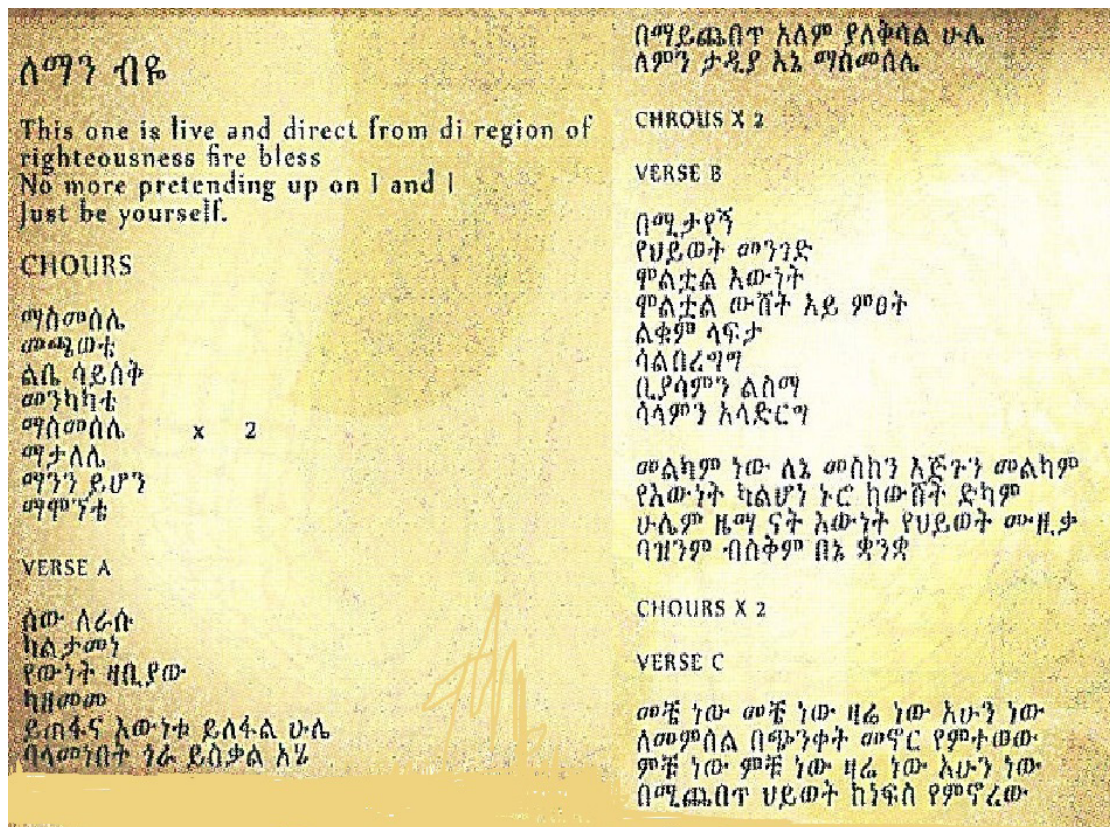 ለማን ብዬ
This one is live and direct from di region of
righteousness fire bless
No more pretending up on I and I
Just be yourself.
CHOURS
ማስመሰሌ
መጫወቴ
ልቤ ሳይስቅ
መንካካቴ
ማስመሰሌ x 2
ማታለሌ
ማንን ይሆን
ማሞኘቴ
VERSE A
ሰው ለራሱ
ካልታመነ
የውነት ዛቢያው
ካዘመመ
ይጠፋና እውነቱ ይለፋል ሁሌ
ባላመነበት ጎራ ይስቃል አሄ
በማይጨበጥ አለም ያለቅሳል ሁሌ
ለምን ታዲያ እኔ ማስመሰሌ
CHROUS X 2
VERSE B
በሚታየኝ
የህይወት መንገድ
ሞልቷል እውነት
ሞልቷል ውሸት እይ ምፀት
ልቁም ላፍታ
ሳልበረግግ
ቢያሳምን ልስማ
ሳላምን አላድርግ
መልካም ነው ለኔ መስከን እጅጉን መልካም
የእውነት ካልሆነ ኑሮ ከውሸት ድካም
ሁሌም ዜማ ናት እውነት የህይወት ሙዚቃ
ባዝንም ብስቅም በኔ ቋንቋ
CHOURS X 2
VERSE C
መቼ ነው መቼ ነው ዛሬ ነው አሁን ነው
ለመምሰል በጭንቀት መኖር የምተወው
ምቼ ነው ምቼ ነው ዛሬ ነው አሁን ነው
በሚጨበጥ ህይወት ከነፍስ የምኖረው